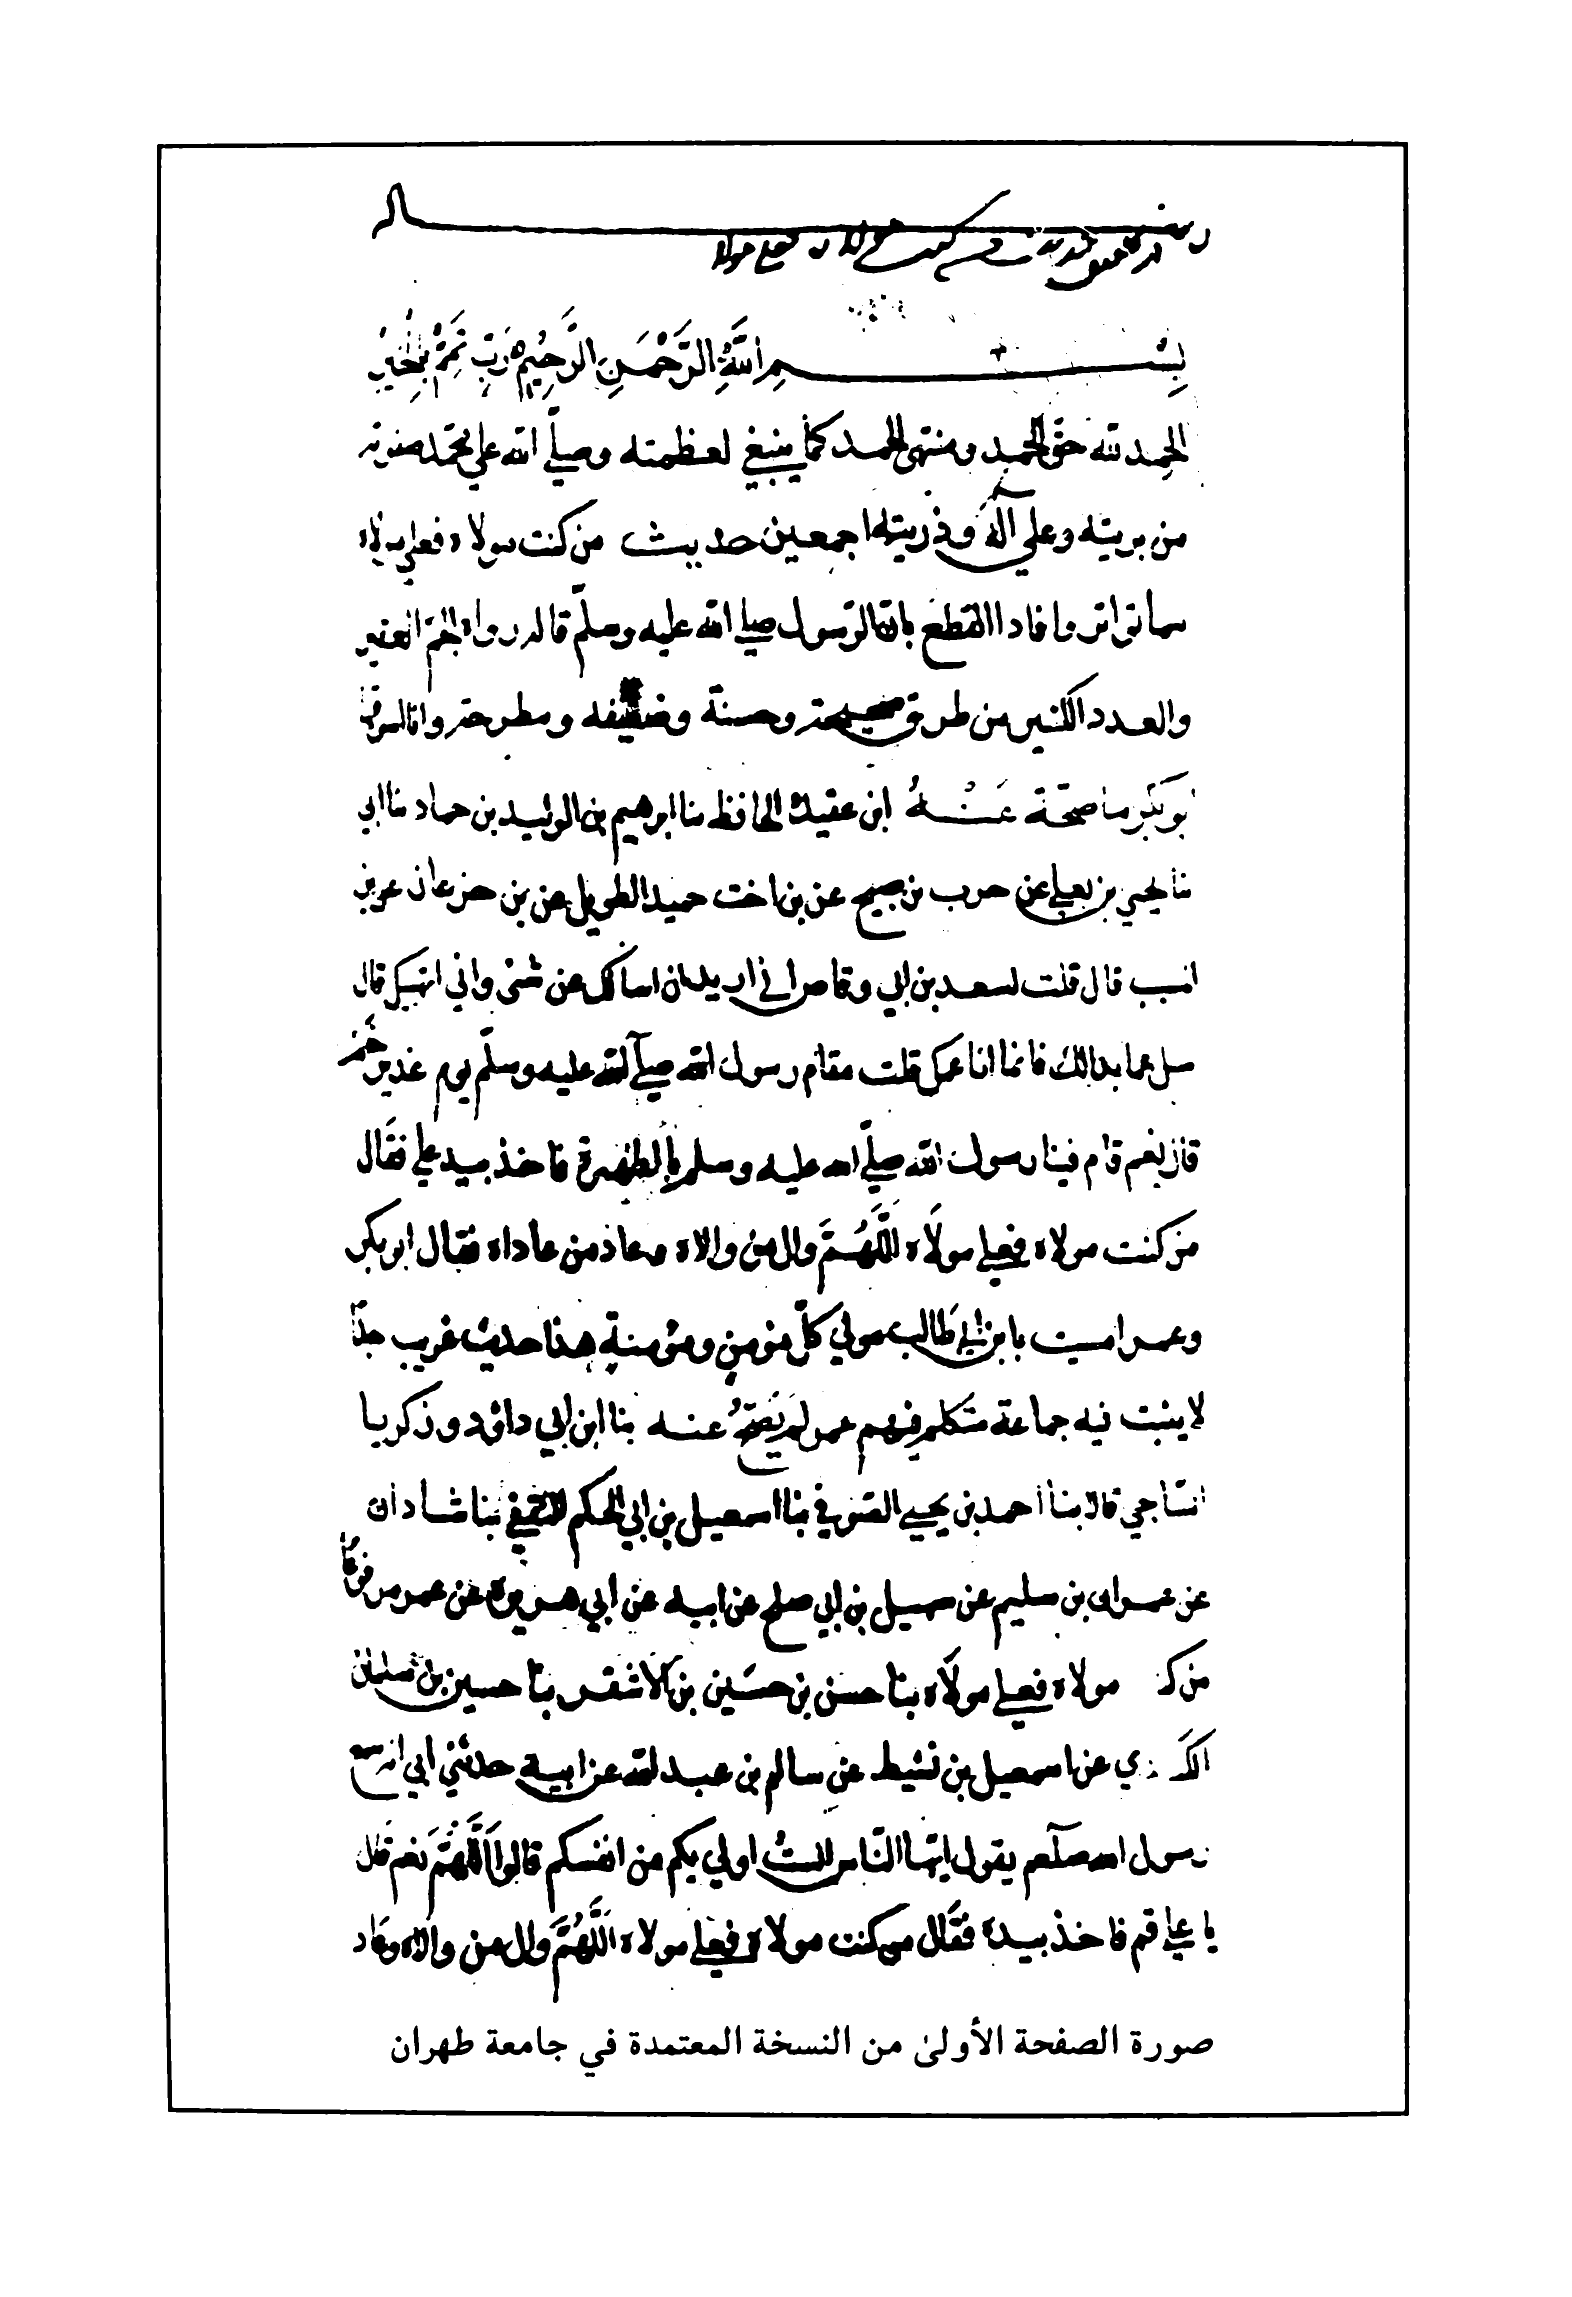 رساله
بسم الله الرحمن الرحيم رب تمم بالخير
الحمد لله حق الحمد ومنتهى الحمد كما ينبغي لعظمته وصلي الله علي محمد صفوته
من بريته وعلي آله وذريته اجمعين حديث من كنت مولاه فعلي مولاه
مما تواتر وافاد القطع بان الرسول صلي الله عليه وسلم قاله رواه الجم الغفير
والعدد الكثير من طرق صحيحة وحسنة وضعيفه ومطرحة وانا اسوقها
عنه ابن عقدة الحافظ ثنا ابرهيم بن الوليد بن حماد ثنا ابي
ثنا يحيى بن يعلي عن حرب بن صبيح عن بن اخت حميد الطويل عن بن جزعان عن بن
المسيب قال قلت لسعد بن ابي وقاص اني اريد ان اسالك عن شئ واني اتهيبك قال
سل عما بدالك فانما انا عمك قلت مقام رسول الله صلى الله عليه وسلم يوم غدير خم
قال نعم قام فينا رسول الله صلي الله عليه وسلم بالظهيرة فاخذ بيد علي فقال
من كنت مولاه فعلي مولاه اللهم وال من والاه وعاد من عاداه فقال ابو بكر
وعمر امسيت يا بن ابي طالب مولي كل مؤمن ومؤمنة هذا حديث غريب جدا
لا يثبت فيه جماعة متكلم فيهم عمر لم يصح عنه ثنا ابن ابي داود وزكريا
الساجي قالا ثنا احمد بن يحيي الصوفي ثنا اسمعيل بن ابي الحكم الثقفي ثنا شاذان
عن عمران بن سليم عن سهيل بن ابي صلح عن ابيه عن ابي هريرة عن عمر مرفوعا
من ك مولاه فعلي مولاه ثنا حسن بن حسين بن الاشقر ثنا حسين بن سليمان
الك دي عن اسمعيل بن نشيط عن سالم بن عبد الله عن ابيه حدثني ابي انه سمع
رسول الله صلعم يقول ايها الناس الست اولي بكم من انفسكم قالوا اللهم نعم قال
يا علي قم فاخذ بيده فقال من كنت مولاه فعلي مولاه اللهم وال من والاه وعاد
صورة الصفحة الأولىٰ من النسخة المعتمدة في جامعة طهران